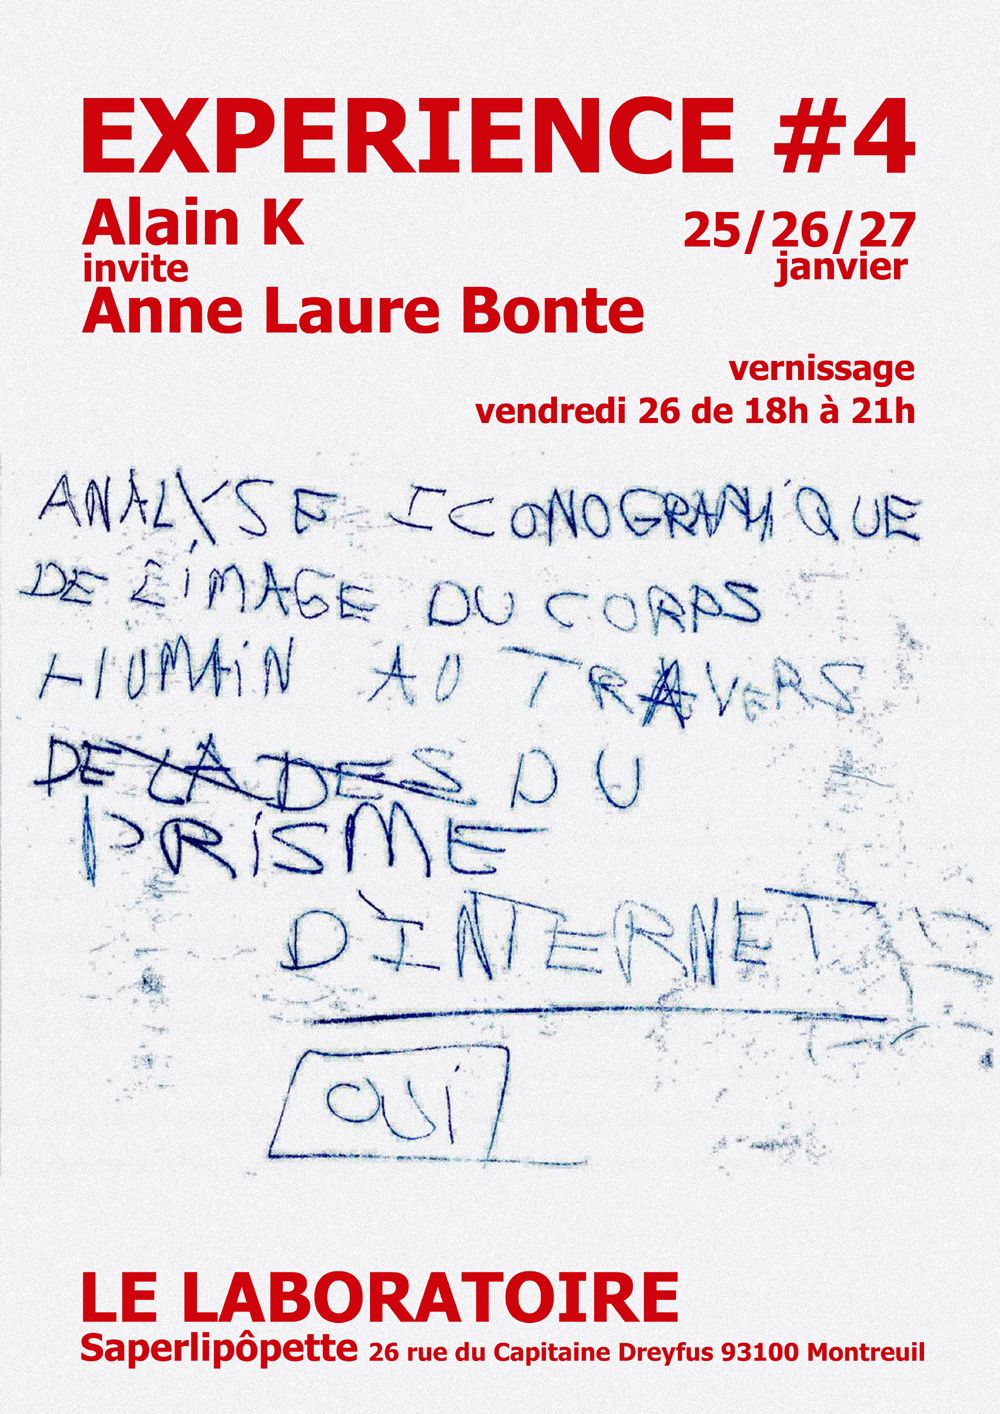 EXPERIENCE #4
Alain K
25/26/27
invite
janvier
Anne Laure Bonte
vernissage
vendredi 26 de 18h à 21h
ANALYSE ICONOGRAPHIQUE
DE L'IMAGE DU CORPS
HUMAIN AU TRAVERS
DE LA DES DU
PRISME
D'INTERNET
OUI
LE LABORATOIRE
Saperlipôpette 26 rue du Capitaine Dreyfus 93100 Montreuil